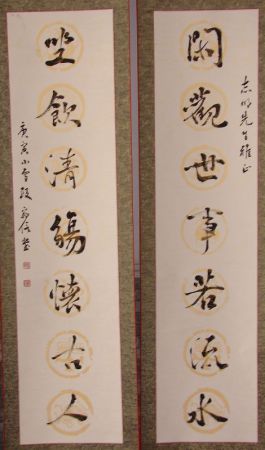 志明先生雅正
閑觀世事若流水
坐飲清觴懷古人
庚寅小雪段